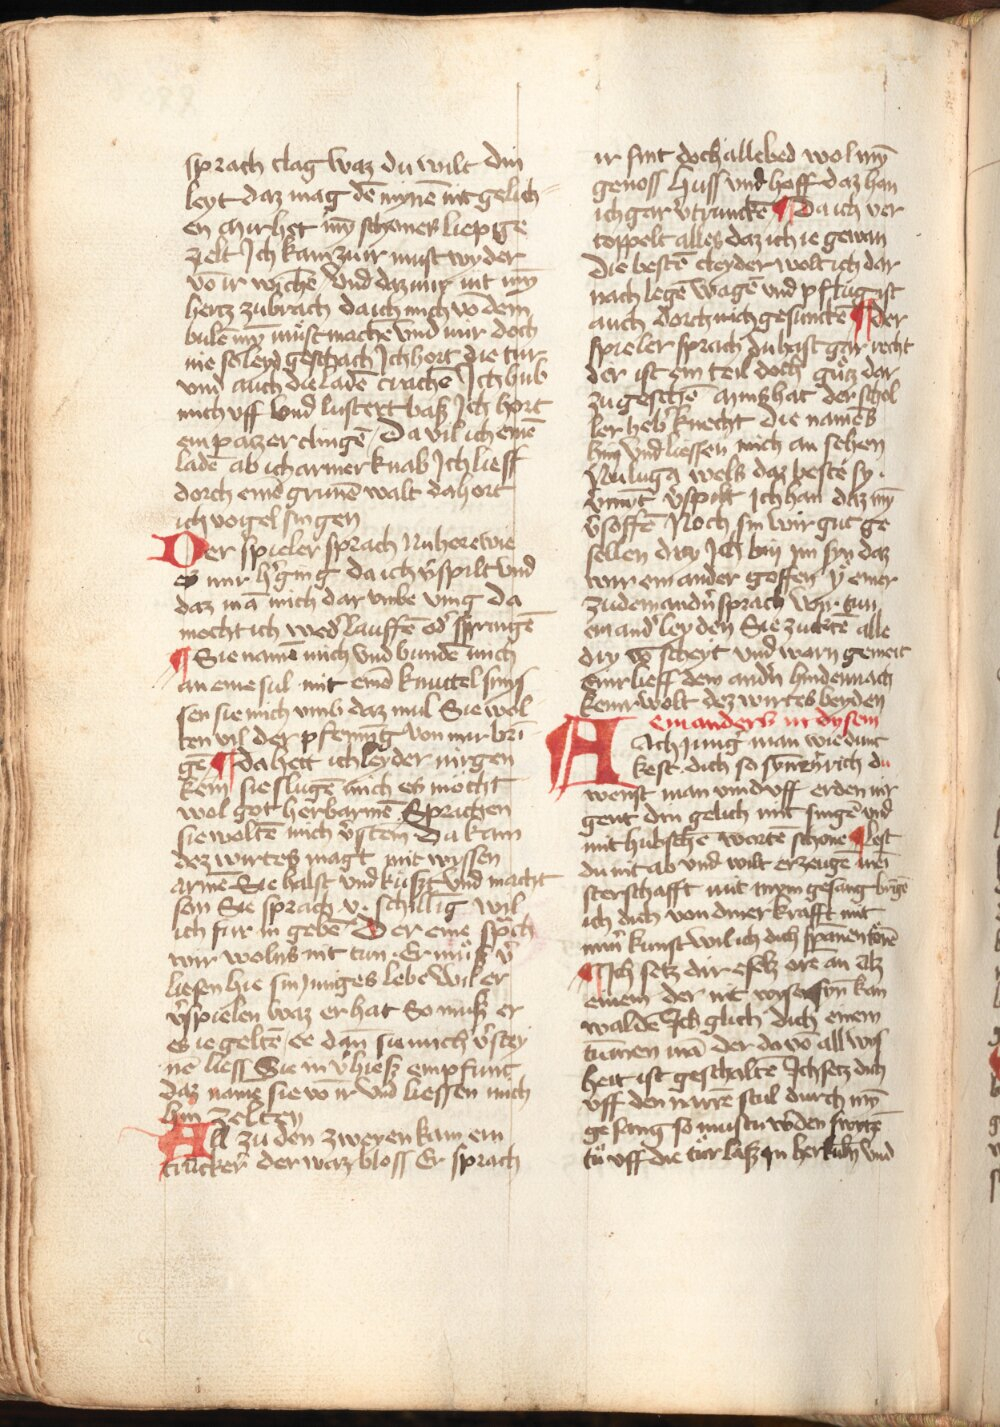 sprach clag waz du wilt din
leyt daz mag dē mynē nit gelich
en Mir het im schones liep ge
zelt Ich kam zu ir must wyder
vō ir wichē Und daz mir nit myn
hertz zubrach da ich mich vō dem
bulē myn must machē und mir doch
nie so leyd geschach Ich hort die tur
und auch die ladē crachē Ich hub
mich uff und lustert baß Ich hort
ein panzer clingē Da viel ich einē
ladē ab ich armer knab Ich lieff
dorch einē grunē walt da hort
ich vogel singen
Der spieler sprach Nu hore wie
es mir erging da ich v̄spilt und
daz mā mich dar umbe ving da
mocht ich wed' lauffē od' springē
Sie namē mich und bundē mich
an eine sul mit einē knuttel smis
sen sie mich umb daz mul Sie wol
ten vil der pfennig von mir bri
gē da hett ich leyder nirgen
kein sie slugē mich es mocht
wol got herbarmē Sprachen
sie woltē mich v̄stein Da kam
dez wirtes magt mit wyssen
armē Sie halst und kust und macht
sen Sie sprach v. schillig wil
ich fur in gebē Der eine sprach
wir wolns nit tun Er muß v̄
liesen hie sin junges lebē Wil er
v̄spielen waz er hat So muß er
es ie geltē ee dan sie mich v̄stey
nē liess Sie in v̄hieß empfung
daz namē sie vō ir und liessen mich
hin zelten
Al zu den zweyen kam ein
truncker der waz bloss Er sprach
ir sint doch alle bed wol myn
genoss Huss und hoff daz han
ich gar v̄trunckē Da ich ver
toppelt alles daz ich ie gewan
Die bestē cleyder wolt ich dar
nach legē wagē und pflug ist
auch dorch mich gesunckē Der
spieler sprach du hast gar recht
der ist ein teil doch gutz dar
zu geschen der schol
ler heb' knecht die namēs
hin und liessen mich an sehen
Nu luga wels daz beste sy
v̄spilt Ich han daz myn
v̄soffē Noch sin wir gut ge
sellen dry Ich bin im syn daz
wir ein ander goffen Y einer
zu dem andn sprach wir tun
ein and' leyden Sie zucktē alle
dry vō scheyt und warn gemeit
Einr lieff dem andn hinden nach
keinr wolt dez wirtes beyden
ein anders in dysem
Ach jung man wie dunc
kest dich so synnrich du
wenst man vind uff erden nir
gent din gelich mit singē und
mit hubschē wortē schone Lost
du nit ab und wilt erzeugē mei
sterschafft mit mym gesang bringē
ich dich von diner krafft mit
mīn kunst wil ich dich spannen tore
Ich setz dir esels ore an Alz
einem der nit wyser syn kan
waldē Ich glich dich einem
tummen mā der do vō all wys
heit ist geschaltē Ich setz dich
uff den narrē stul durch myn
gesang so mustu w̄den switzē
tu uff die tur laß in her kuln und